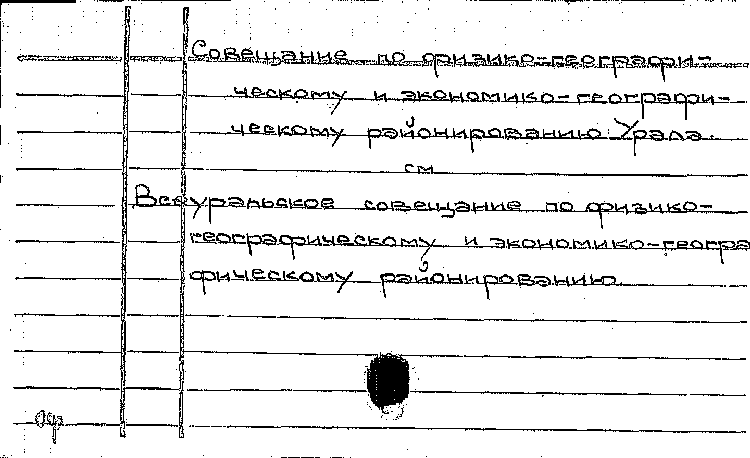 Совещание по физико-географи-
ческому и экономико-географи-
ческому районированию Урала.
см
Всеуральское совещание по физико-
географическому и экономико-геогра
фическому районированию.